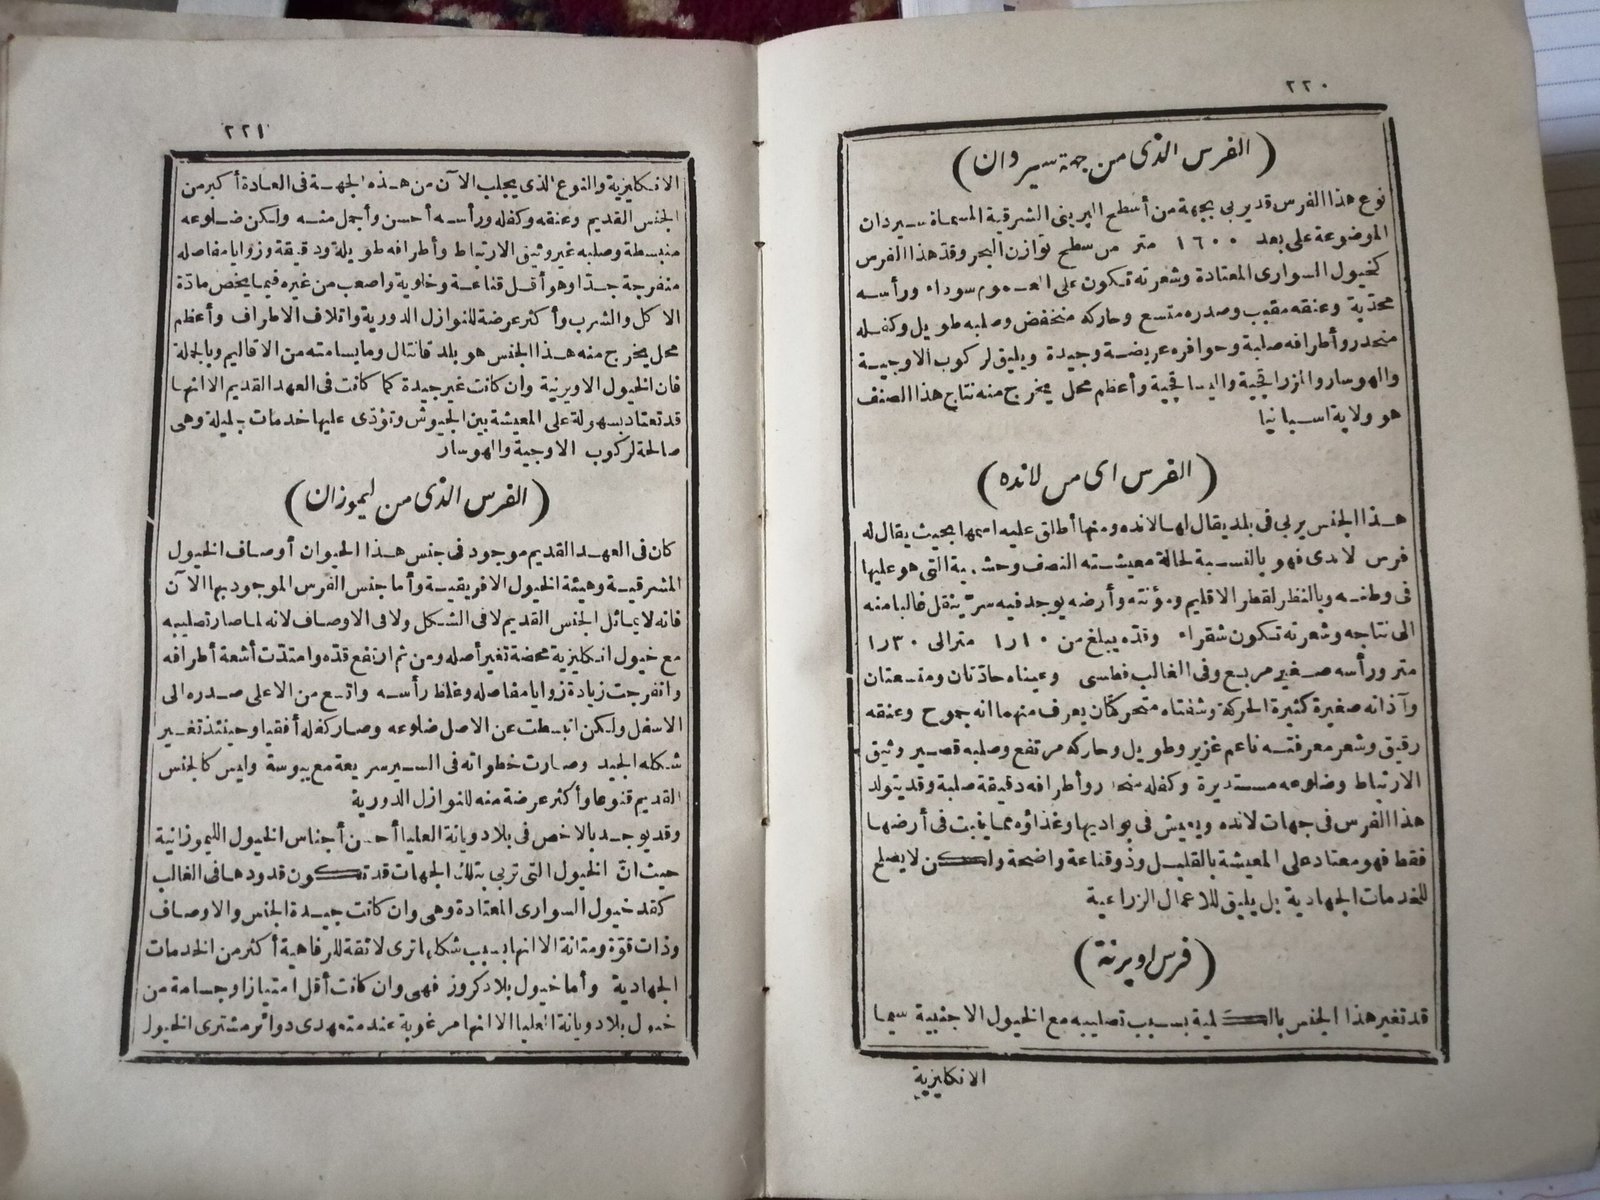 ٢٢٠
(الفرس الذى من جهة سيردان)
نوع هذا الفرس قد يربى بجهة من أسطح البرينى الشرقية المسماة سيردان
الموضوعة على بعد ١٦٠٠ متر من سطح توازن البحر وقد هذا الفرس
كخيول السوارى المعتادة وشعرته تكون على العموم سوداء ورأسه
محدّبة وعنقه مقبب وصدره متسع وحاركه منخفض وصلبه طويل وكفله
منحدر وأطرافه صلبة وحوافره عريضة وجيدة ويليق لركوب الاوجية
والهوسار والمزراقجية والبساقجية وأعظم محل يخرج منه نتاج هذا الصنف
هو ولاية اسبانيا
(الفرس اى من لانده)
هذا الجنس يربى فى بلد يقال لها لانده ومنها أطلق عليه اسمها بحيث يقال له
فرس لاندى فهو بالنسبة لحالة معيشته النصف وحشية التى هو عليها
فى وطنه وبالنظر لقطر الاقليم ومؤنته وأرضه يوجد فيه سرّ ينقل غالبا منه
الى نتاجه وشعرته تكون شقراء وقدّه يبلغ من ١٠ر١ متر الى ٣٠ر١
متر ورأسه صغير مربع وفى الغالب فطسى وعيناه حادّتان ومتسعتان
وآذانه صغيرة كثيرة الحركة وشفتاه متحركتان يعرف منهما انه جموح وعنقه
رقيق وشعر معرفته ناعم غزير وطويل وحاركه مرتفع وصلبه قصير وثيق
الارتباط وضلوعه مستديرة وكفله منحدر وأطرافه دقيقة صلبة وقد يتولد
هذا الفرس فى جهات لانده ويعيش فى بواديها وغذاؤه مما ينبت فى أرضها
فقط فهو معتاد على المعيشة بالقليل وذو قناعة واضحة ولكن لا يصلح
للخدمات الجهادية بل يليق للاعمال الزراعية
(فرس اويرنة)
قد تغير هذا الجنس بالكلية بسبب تصليبه مع الخيول الاجنبية سيما
الانكليزية
٢٢١
الانكليزية والنوع الذى يجلب الآن من هذه الجهة فى العادة أكبر من
الجنس القديم وعنقه وكفله ورأسه أحسن وأجمل منه ولكن ضلوعه
منبسطة وصلبه غير وثيق الارتباط وأطرافه طويلة ودقيقة وزوايا مفاصله
منفرجة جدّا وهو أقل قناعة وخاوية واصعب من غيره فيما يخص مادّة
الاكل والشرب وأكثر عرضة للنوازل الدورية واتلاف الاطراف وأعظم
محل يخرج منه هذا الجنس هو بلد قانتال وما يسامته من الاقاليم وبالجملة
فان الخيول الاويرنية وان كانت غير جيدة كما كانت فى العهد القديم الا انها
قد تعتاد بسهولة على المعيشة بين الجيوش وتؤدّى عليها خدمات جليلة وهى
صالحة لركوب الاوجية والهوسار
(الفرس الذى من ليموزان)
كان فى العهد القديم موجود فى جنس هذا الحيوان أوصاف الخيول
المشرقية وهيئة الخيول الافريقية وأما جنس الفرس الموجود بها الآن
فانه لا يماثل الجنس القديم لا فى الشكل ولا فى الاوصاف لانه لما صار تصليبه
مع خيول انكليزية محضة تغير أصله ومن ثم ارتفع قدّه وامتدّت أشعة أطرافه
وانفرجت زيادة زوايا مفاصله وغلظ رأسه واتسع من الاعلى صدره الى
الاسفل ولكن انبسطت عن الاصل ضلوعه وصار كفله أفقيا وحينئذ تغير
شكله الجيد وصارت خطواته فى السير سريعة مع يبوسة وليس كالجنس
القديم قنوعا وأكثر عرضة منه للنوازل الدورية
وقد يوجد بالاخص فى بلاد ويانة العليا أحسن أجناس الخيول الليموزانية
حيث انّ الخيول التى تربى بتلك الجهات قد تكون قدودها فى الغالب
كقد خيول السوارى المعتادة وهى وان كانت جيدة الجنس والاوصاف
وذات قوّة ومتانة الا انها بسبب شكلها ترى لائقة للرفاهية أكثر من الخدمات
الجهادية وأما خيول بلاد كروز فهى وان كانت أقل امتيازا وجسامة من
خيول بلاد ويانة العليا الا انها مرغوبة عند متعهدى دوائر مشترى الخيول